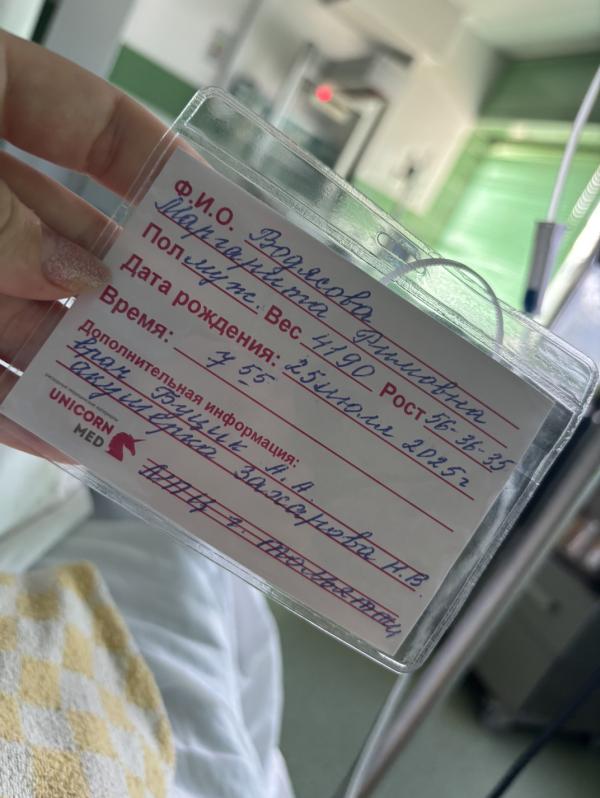 Ф.И.О. Водясова
Маргарита Римовна
Пол муж. Вес 4190 Рост 56-36-35
Дата рождения: 25 июля 2025г
Время: 7 55
Дополнительная информация:
врач Буцик А.А.
акушерка Захарова Н.В.
UNICORN
MED